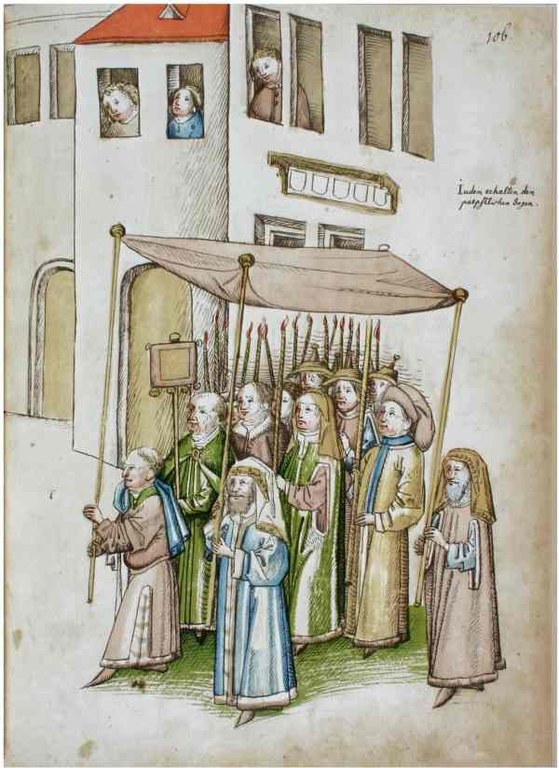 106
Juden erhalten den
päpstlichen Segen.